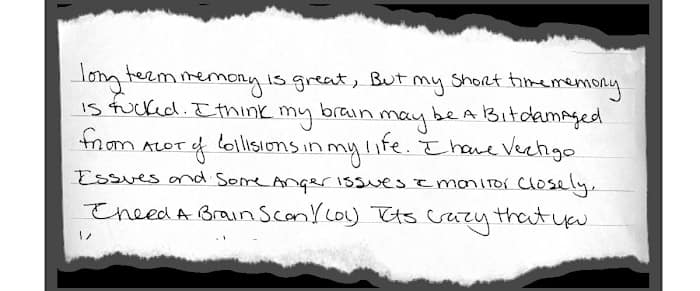 long term memory is great, But my short time memory
is fucked. I think my brain may be A Bit damaged
from ALOT of Collisions in my life. I have Vertigo
Issues and Some Anger issues I monitor closely.
I need A Brain Scan! (LOL) Its crazy that you